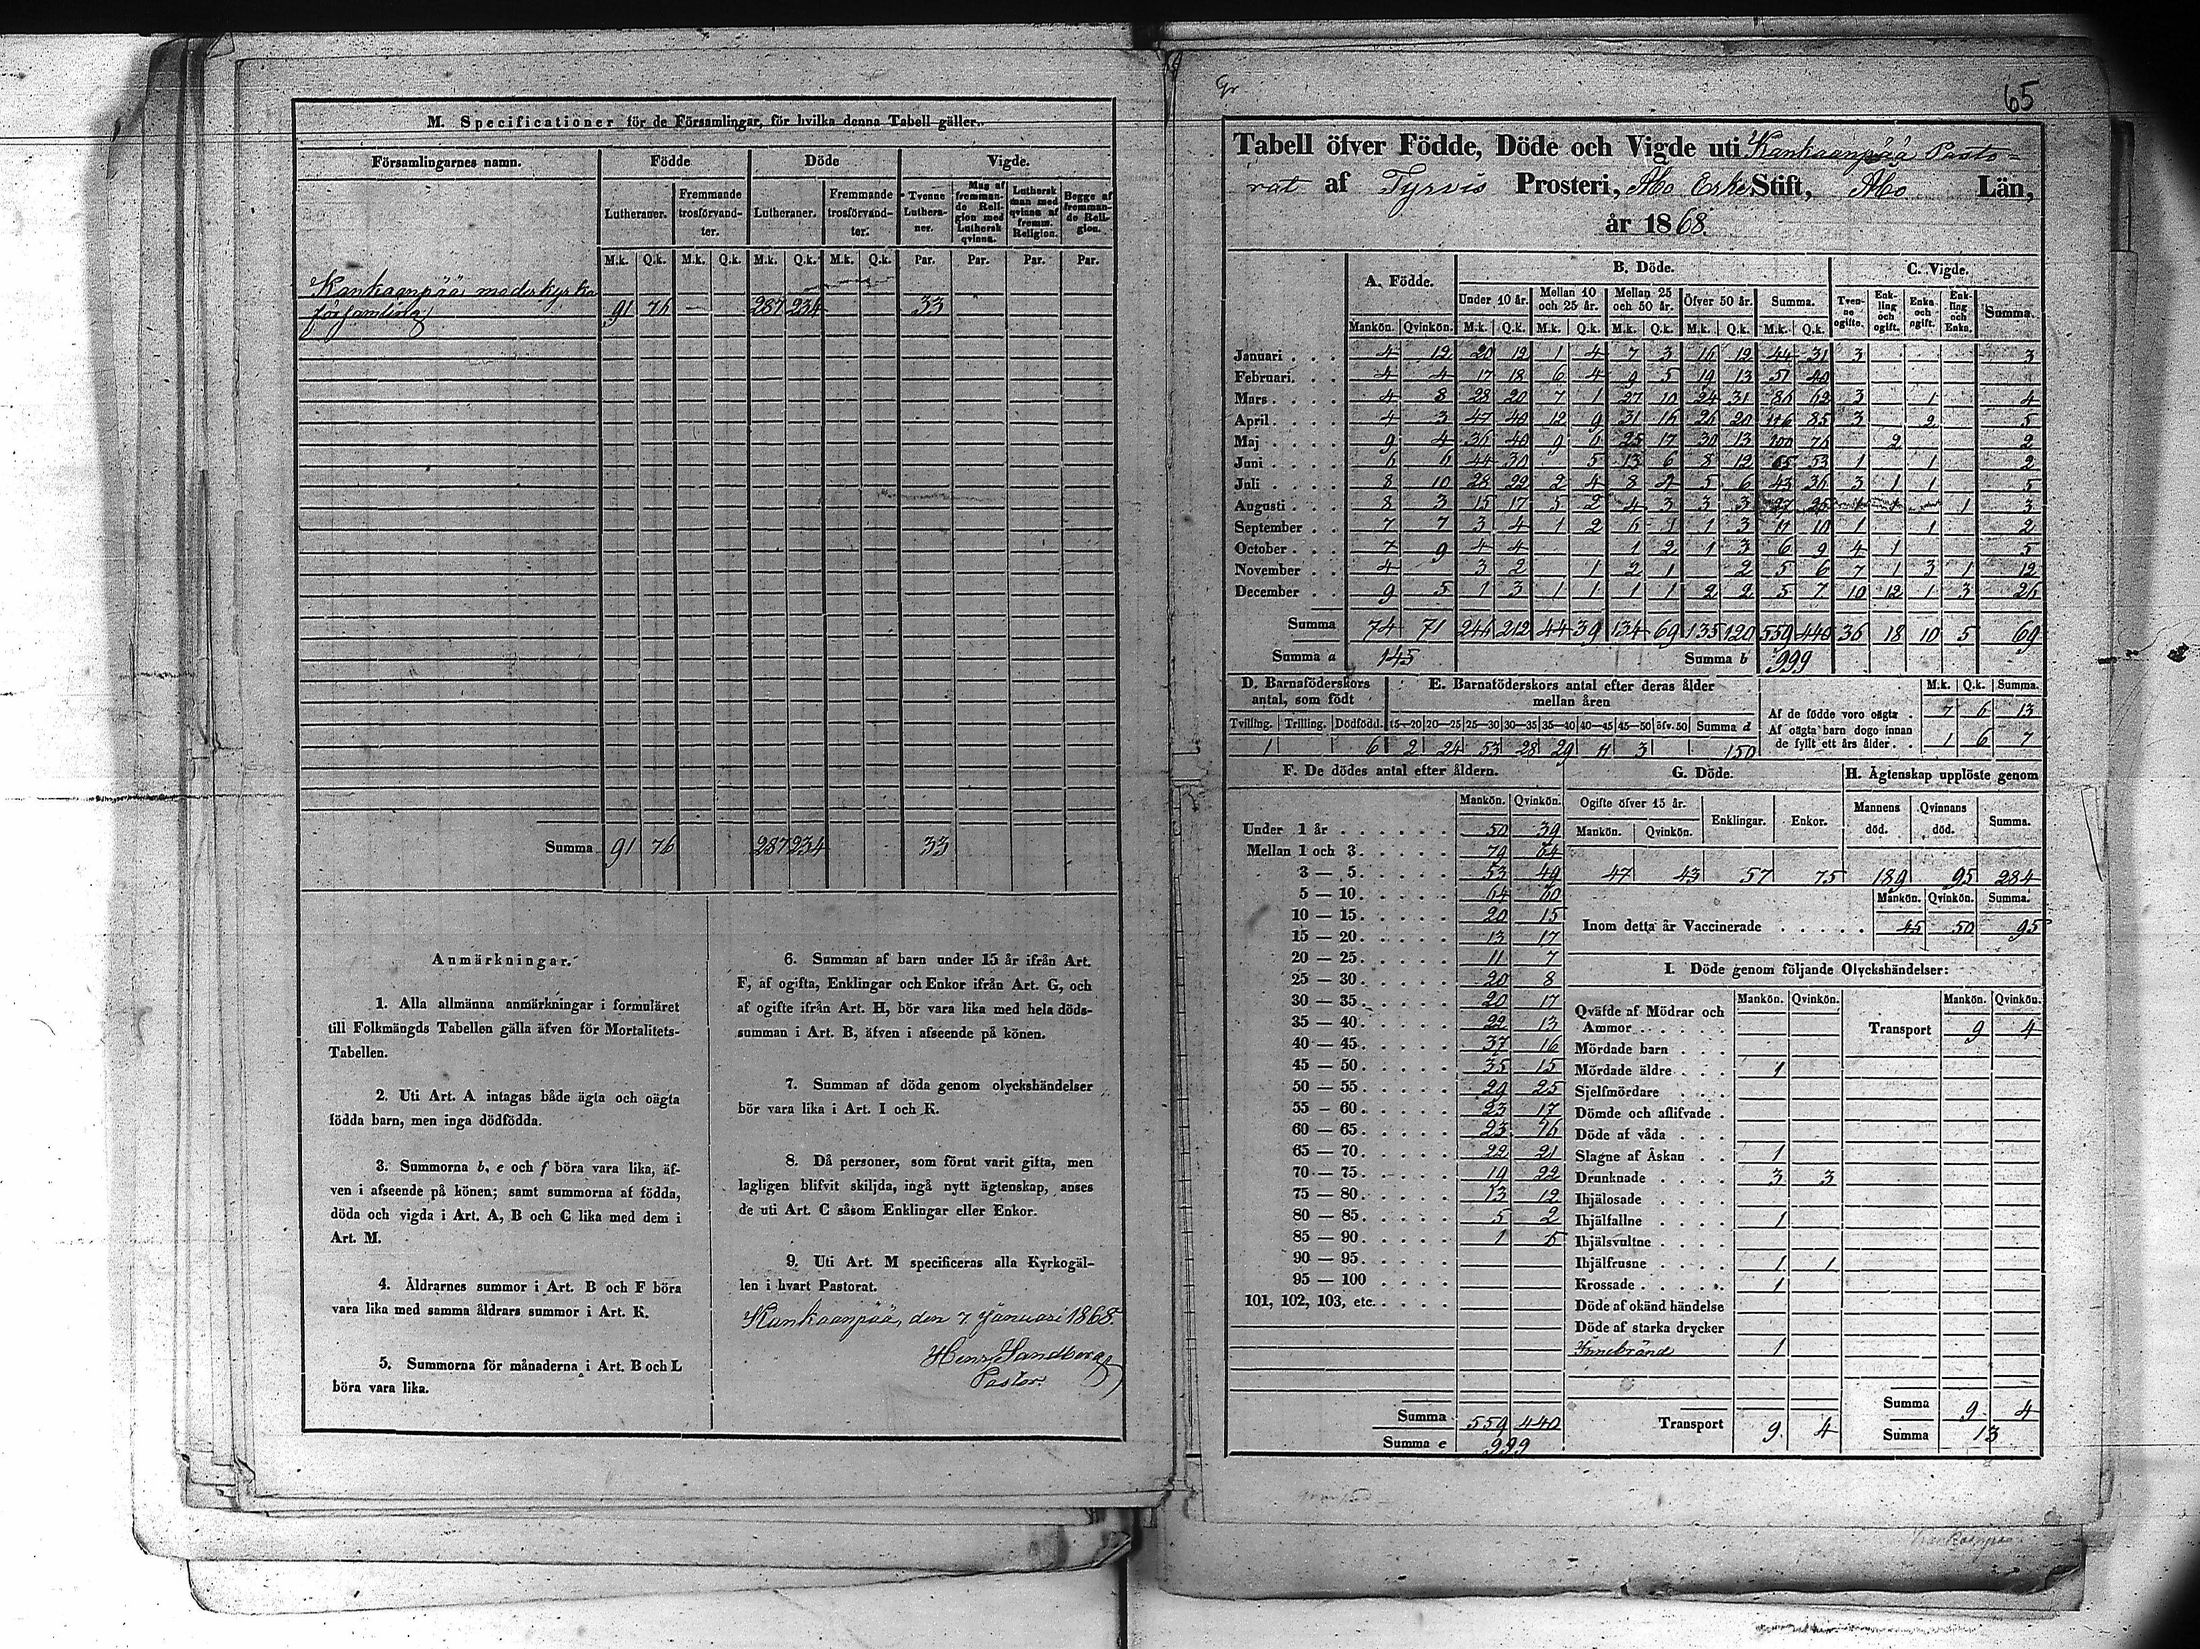 M. Specificationer för de Församlingar, för hvilka denna Tabell gäller.
Församlingarnes namn. Födde Döde Vigde.
Lutheraner. Fremmande trosförvandter. Lutheraner. Fremmande trosförvandter. Tvenne Lutheraner. Man af fremmande Religion med Luthersk qvinna. Luthersk man med qvinna af fremm. Religion. Begge af fremmande Religion.
M.k. Q.k. M.k. Q.k. M.k. Q.k. M.k. Q.k. Par. Par. Par. Par.
Kankaanpää moderkyrko
församling 91 76 — — 287 234 33
Summa 91 76 287 234 33
Anmärkningar.
1. Alla allmänna anmärkningar i formuläret
till Folkmängds Tabellen gälla äfven för Mortalitets-
Tabellen.
2. Uti Art. A intagas både ägta och oägta
födda barn, men inga dödfödda.
3. Summorna b, e och f böra vara lika, äf-
ven i afseende på könen; samt summorna af födda,
döda och vigda i Art. A, B och C lika med dem i
Art. M.
4. Åldrarnes summor i Art. B och F böra
vara lika med samma åldrars summor i Art. K.
5. Summorna för månaderna i Art. B och L
böra vara lika.
6. Summan af barn under 15 år ifrån Art.
F, af ogifta, Enklingar och Enkor ifrån Art. G, och
af ogifte ifrån Art. H, bör vara lika med hela döds-
summan i Art. B, äfven i afseende på könen.
7. Summan af döda genom olyckshändelser
bör vara lika i Art. I och K.
8. Då personer, som förut varit gifta, men
lagligen blifvit skiljda, ingå nytt ägtenskap, anses
de uti Art. C såsom Enklingar eller Enkor.
9. Uti Art. M specificeras alla Kyrkogäl-
len i hvart Pastorat.
Kankaanpää, den 7 Januari 1868.
Henr. Sandberg
Pastor.
65
Tabell öfver Födde, Döde och Vigde uti Kankaanpää Pasto-
rat af Tyrvis Prosteri, Åbo Erke Stift, Åbo Län,
år 1868.
A. Födde. B. Döde. C. Vigde.
Under 10 år. Mellan 10 och 25 år. Mellan 25 och 50 år. Öfver 50 år. Summa. Tvenne ogifte. Enkling och ogift. Enka och ogift. Enkling och Enka. Summa.
Mankön. Qvinkön. M.k. Q.k. M.k. Q.k. M.k. Q.k. M.k. Q.k. M.k. Q.k.
Januari 4 12 20 12 1 4 7 3 16 12 44 31 3 3
Februari 4 4 17 18 6 4 9 5 19 13 51 40
Mars 4 8 28 20 7 1 27 10 24 31 86 62 3 1 4
April 4 3 47 40 12 9 31 16 26 20 116 85 3 2 5
Maj 9 4 36 40 9 6 25 17 30 13 100 76 2 2
Juni 6 6 44 30 5 13 6 8 12 65 53 1 1 2
Juli 8 10 28 22 2 4 8 4 5 6 43 36 3 1 1 5
Augusti 8 3 15 17 5 2 4 3 3 3 27 25 1 1 1 3
September 7 7 3 4 1 2 6 1 1 3 11 10 1 1 2
October 7 9 4 4 1 2 1 3 6 9 4 1 5
November 4 3 2 1 2 1 2 5 6 7 1 3 1 12
December 9 5 1 3 1 1 1 1 2 2 5 7 10 12 1 3 26
Summa 74 71 246 212 44 39 134 69 135 120 559 440 36 18 10 5 69
Summa a 145 Summa b 999
D. Barnaföderskors antal, som födt E. Barnaföderskors antal efter deras ålder mellan åren M.k. Q.k. Summa.
Tvilling. Trilling. Dödfödd. 15—20 20—25 25—30 30—35 35—40 40—45 45—50 öfv. 50 Summa d
1 6 2 24 53 28 29 11 3 150
Af de födde voro oägta 7 6 13
Af oägta barn dogo innan de fyllt ett års ålder 1 6 7
F. De dödes antal efter åldern.
Mankön. Qvinkön.
Under 1 år 50 39
Mellan 1 och 3 79 64
3 — 5 53 49
5 — 10 64 60
10 — 15 20 15
15 — 20 13 17
20 — 25 11 7
25 — 30 20 8
30 — 35 20 17
35 — 40 22 13
40 — 45 37 16
45 — 50 35 15
50 — 55 29 25
55 — 60 23 17
60 — 65 23 16
65 — 70 22 21
70 — 75 19 22
75 — 80 13 12
80 — 85 5 2
85 — 90 1 5
90 — 95
95 — 100
101, 102, 103, etc.
Summa 559 440
Summa e 999
G. Döde. H. Ägtenskap upplöste genom
Ogifte öfver 15 år. Enklingar. Enkor. Mannens död. Qvinnans död. Summa.
Mankön. Qvinkön.
47 43 57 75 189 95 284
Mankön. Qvinkön. Summa.
Inom detta år Vaccinerade 45 50 95
I. Döde genom följande Olyckshändelser:
Mankön. Qvinkön. Mankön. Qvinkön.
Qväfde af Mödrar och Ammor
Transport 9 4
Mördade barn
Mördade äldre 1
Sjelfmördare
Dömde och aflifvade
Döde af våda
Slagne af Åskan 1
Drunknade 3 3
Ihjälosade
Ihjälfallne 1
Ihjälsvultne
Ihjälfrusne 1 1
Krossade 1
Döde af okänd händelse
Döde af starka drycker
Innebränd 1
Transport 9 4
Summa 9 4
Summa 13